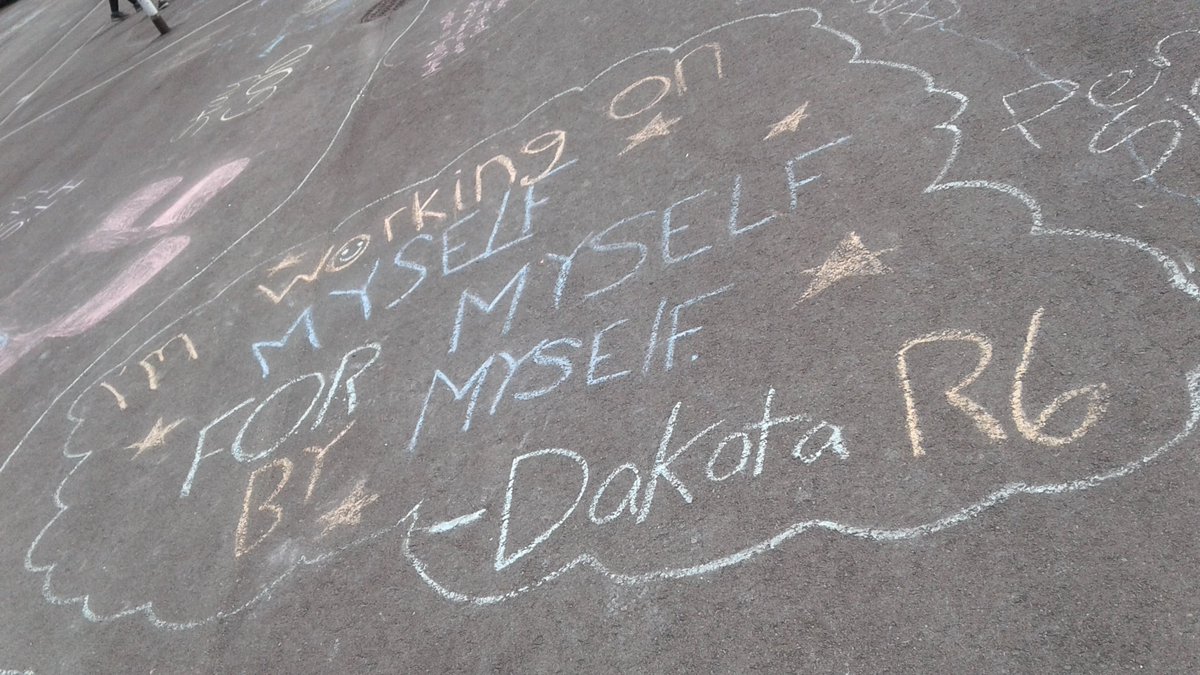 I'm working on
MYSELF
FOR MYSELF
BY MYSELF.
-Dakota R6